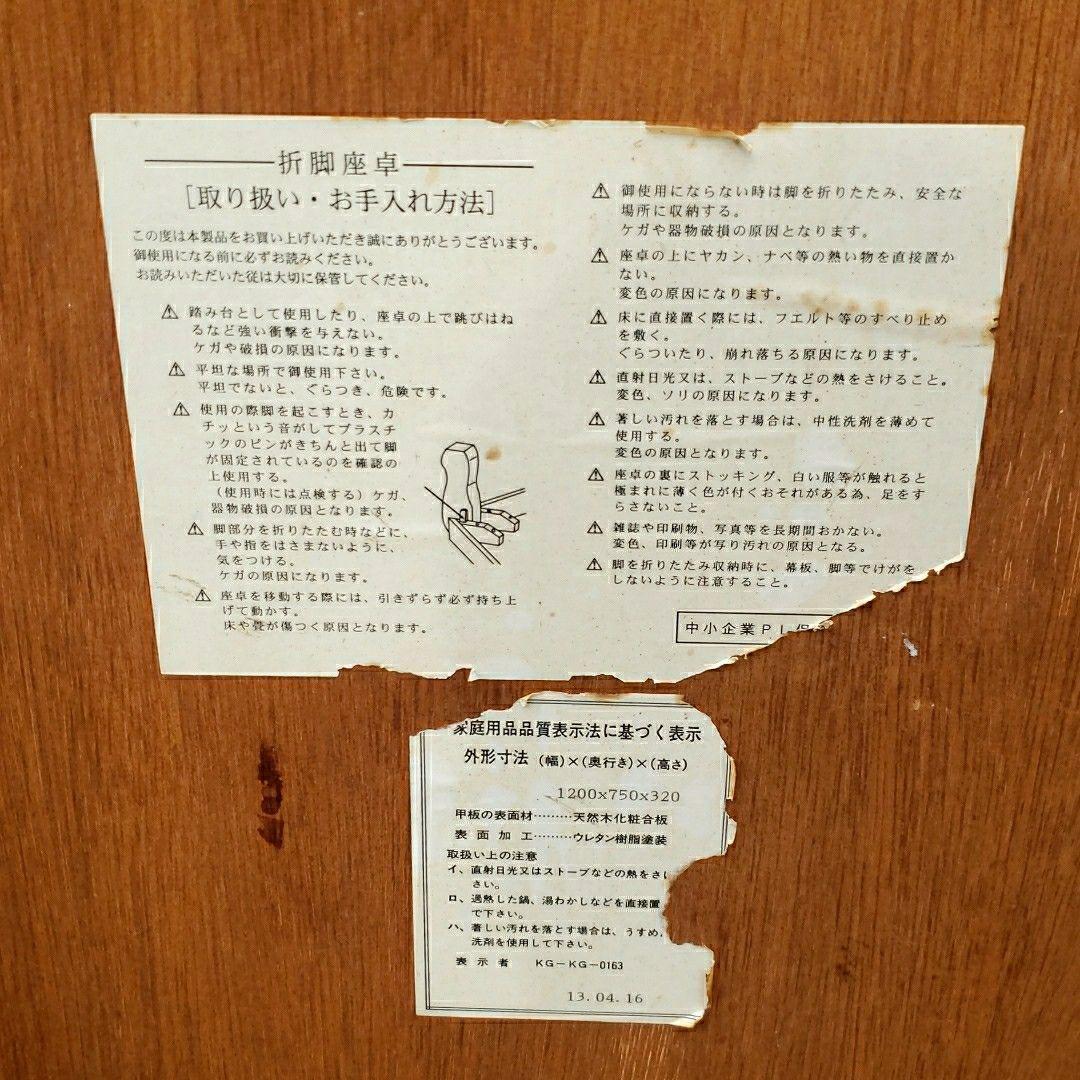 折脚座卓
[取り扱い・お手入れ方法]
この度は本製品をお買い上げいただき誠にありがとうございます。
御使用になる前に必ずお読みください。
お読みいただいた従は大切に保管してください。
⚠ 踏み台として使用したり、座卓の上で跳びはね
るなど強い衝撃を与えない。
ケガや破損の原因になります。
⚠ 平坦な場所で御使用下さい。
平坦でないと、ぐらつき、危険です。
⚠ 使用の際脚を起こすとき、カ
チッという音がしてプラスチ
ックのピンがきちんと出て脚
が固定されているのを確認の
上使用する。
(使用時には点検する)ケガ、
器物破損の原因となります。
⚠ 脚部分を折りたたむ時などに、
手や指をはさまないように、
気をつける。
ケガの原因になります。
⚠ 座卓を移動する際には、引きずらず必ず持ち上
げて動かす。
床や畳が傷つく原因となります。
⚠ 御使用にならない時は脚を折りたたみ、安全な
場所に収納する。
ケガや器物破損の原因となります。
⚠ 座卓の上にヤカン、ナベ等の熱い物を直接置か
ない。
変色の原因になります。
⚠ 床に直接置く際には、フエルト等のすべり止め
を敷く。
ぐらついたり、崩れ落ちる原因になります。
⚠ 直射日光又は、ストーブなどの熱をさけること。
変色、ソリの原因になります。
⚠ 著しい汚れを落とす場合は、中性洗剤を薄めて
使用する。
変色の原因となります。
⚠ 座卓の裏にストッキング、白い服等が触れると
極まれに薄く色が付くおそれがある為、足をす
らさないこと。
⚠ 雑誌や印刷物、写真等を長期間おかない。
変色、印刷等が写り汚れの原因となる。
⚠ 脚を折りたたみ収納時に、幕板、脚等でけがを
しないように注意すること。
中小企業PL保
家庭用品品質表示法に基づく表示
外形寸法 (幅)×(奥行き)×(高さ)
1200x750x320
甲板の表面材………天然木化粧合板
表面加工………ウレタン樹脂塗装
取扱い上の注意
イ、直射日光又はストーブなどの熱をさけ
さい。
ロ、過熱した鍋、湯わかしなどを直接置
で下さい。
ハ、著しい汚れを落とす場合は、うすめ
洗剤を使用して下さい。
表示者 KG-KG-0163
13.04.16